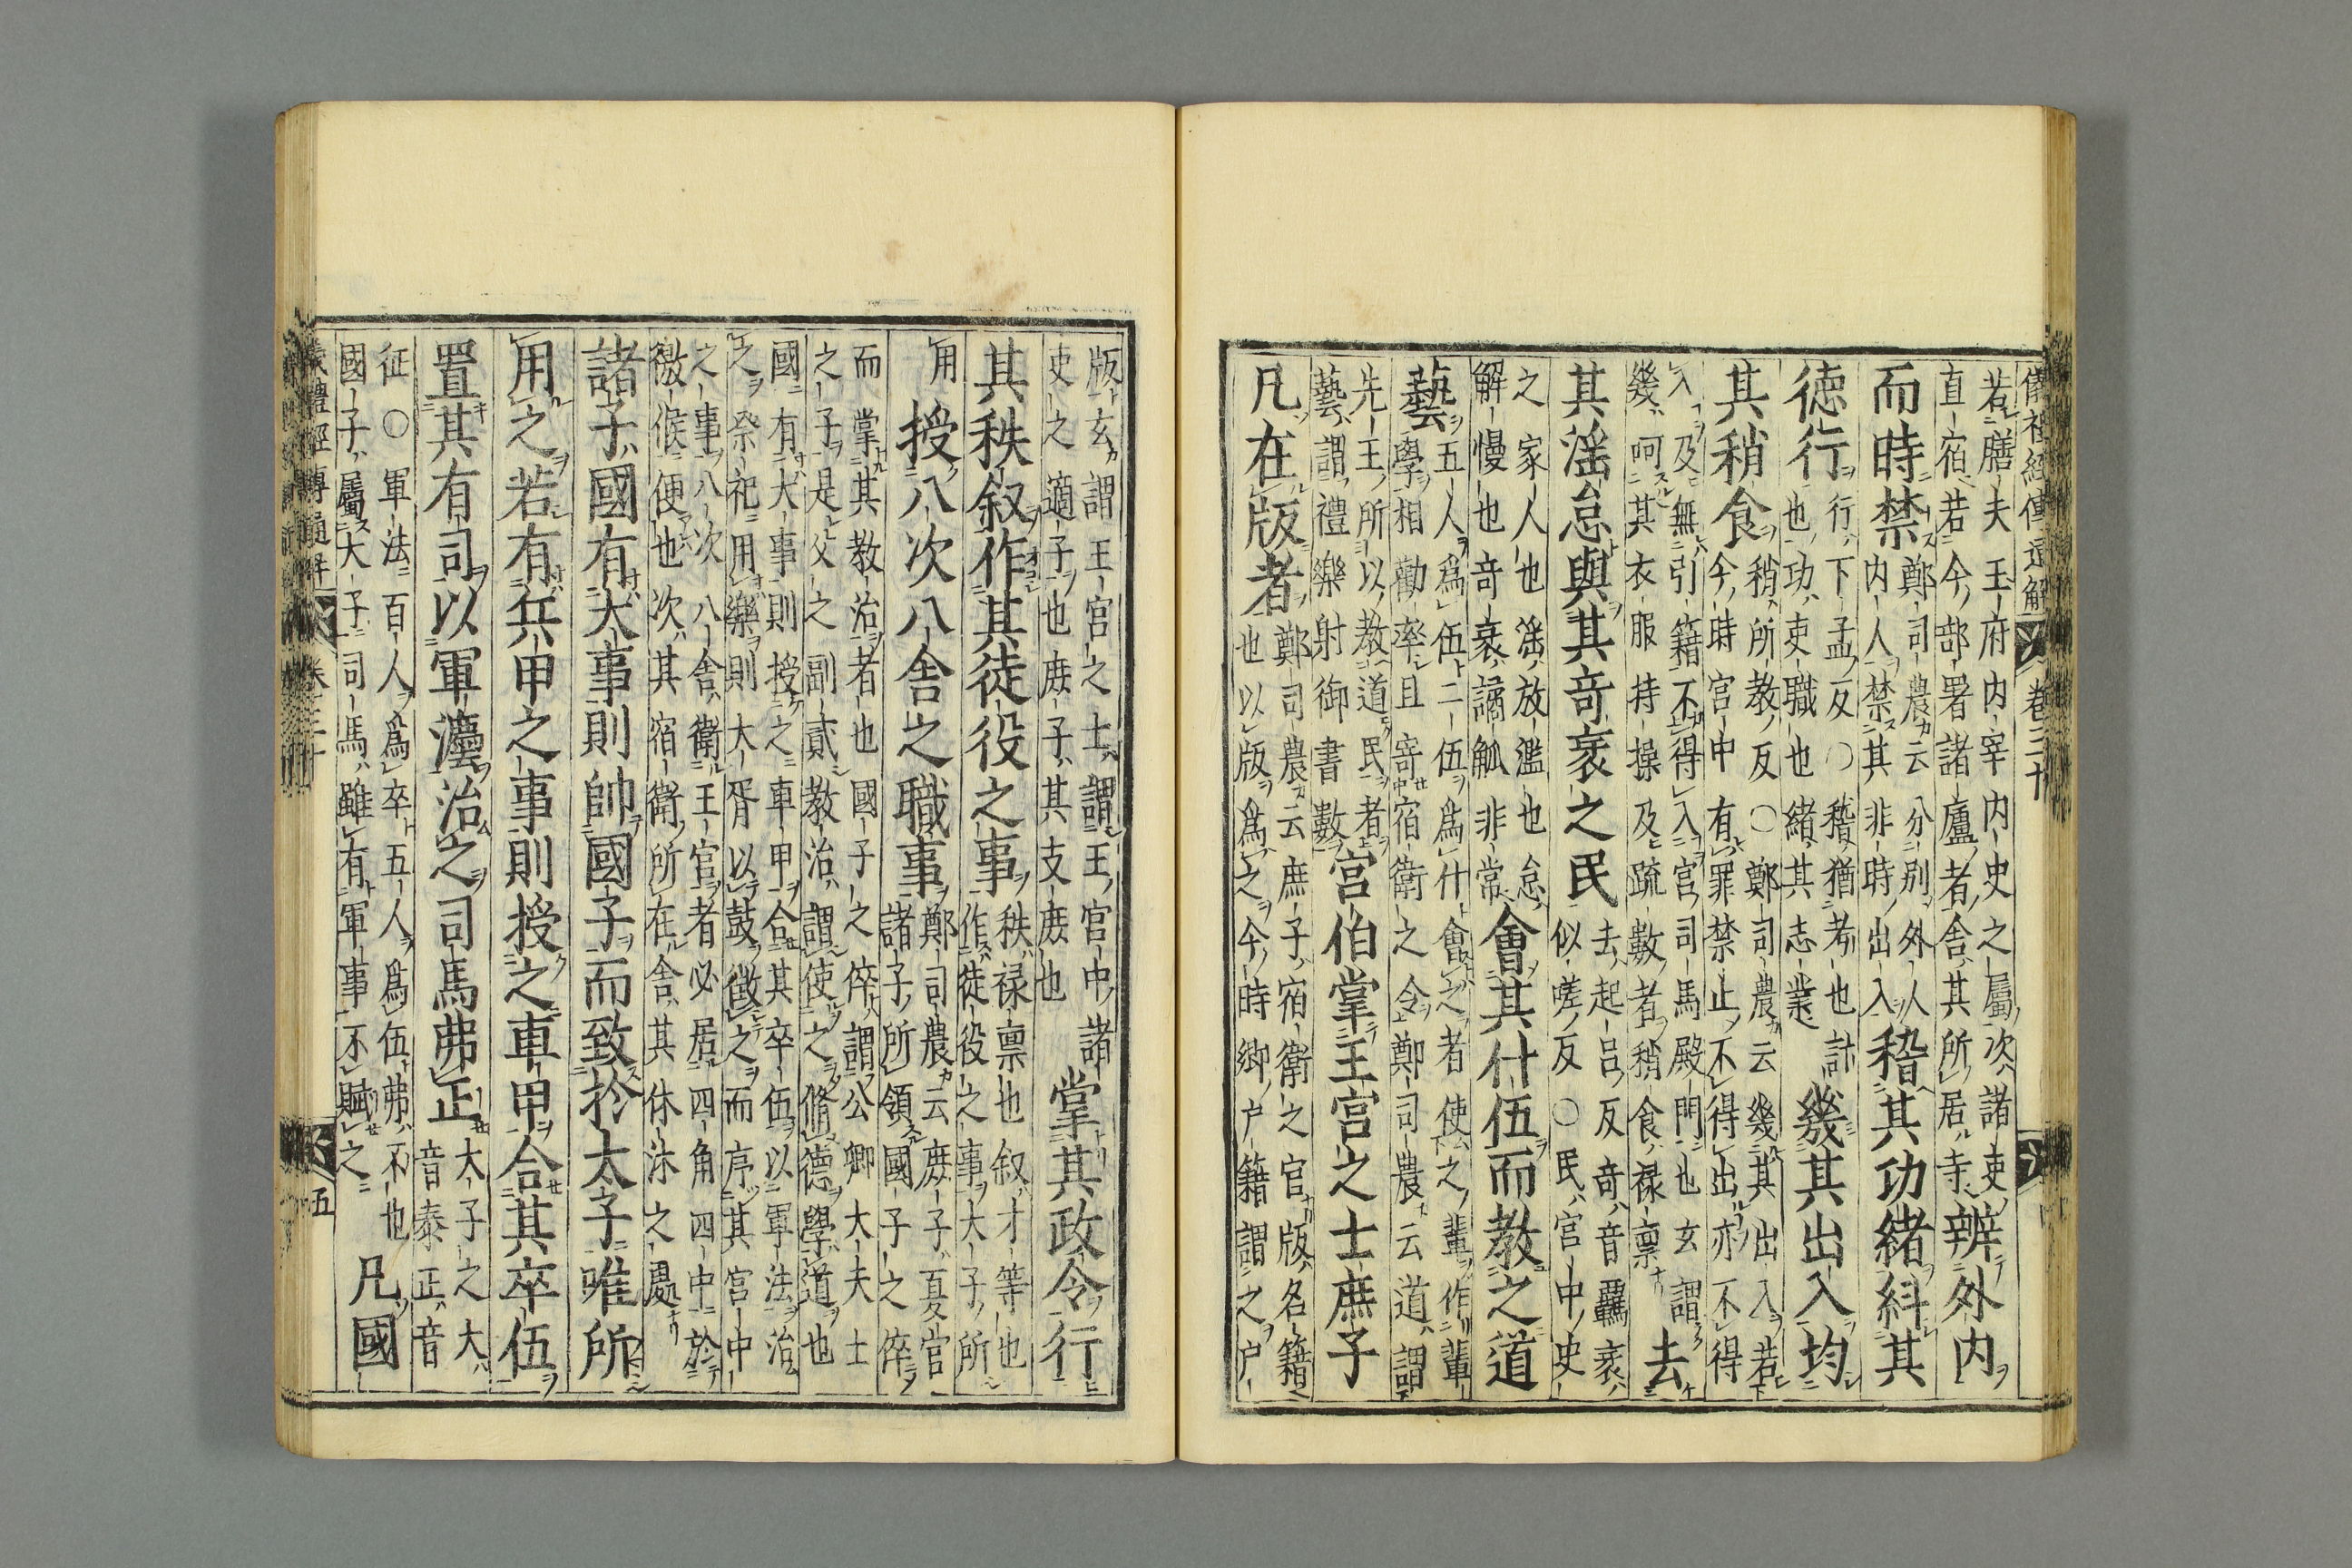 儀禮經傳通解 卷三十
若膳夫玉府内宰内史之屬次諸吏
直宿若今部署諸廬者舍其所居寺
辨外内
而時禁
鄭司農云分别外人
内人禁其非時出入
稽其功緒糾其
德行
行下孟反○稽猶考也計
也功吏職也緒其志業
幾其出入均
其稍食
稍所教反○鄭司農云幾其出入若
今時宮中有罪禁止不得出亦不得
入及無引籍不得入宮司馬殿門也玄謂
幾呵其衣服持操及疏數者稍食禄禀
去
其滛怠與其奇衺之民
去起吕反奇音羈衺
似嗟反○民宮中吏
之家人也滛放濫也怠
解慢也奇衺譎觚非常
會其什伍而教之道
藝
五人爲伍二伍爲什會之者使之輩作輩
學相勸率且寄宿衛之令鄭司農云道謂
先王所以教道民者
藝謂禮樂射御書數
宮伯掌王宮之士庶子
凡在版者
鄭司農云庶子宿衛之官版名籍
也以版爲之今時鄉户籍謂之户
版玄謂王宮之士謂王宮中諸
吏之適子也庶子其支庶也
掌其政令行
其秩叙作其徒役之事
秩禄禀也叙才等也
作徒役之事大子所
用
授八次八舍之職事
鄭司農云庶子夏官
諸子所領國子之倅
而掌其教治者也國子之倅謂公卿大夫士
之子是父之副貳教治謂使之脩德學道也
國有大事則授之車甲合其卒伍以軍法治
之祭祀用樂則大胥以鼓徵之而序其宮中
之事八次八舍衛王官者必居四角四中於
徼候便也次其宿衛所在舍其休沐之處
諸子國有大事則帥國子而致於太子唯所
用之若有兵甲之事則授之車甲合其卒伍
置其有司以軍灋治之司馬弗正
大子之大
音泰正音
征○軍法百人爲卒五人爲伍弗不也
國子屬大子司馬雖有軍事不賦之
凡國
儀禮經傳通解 卷三十 五